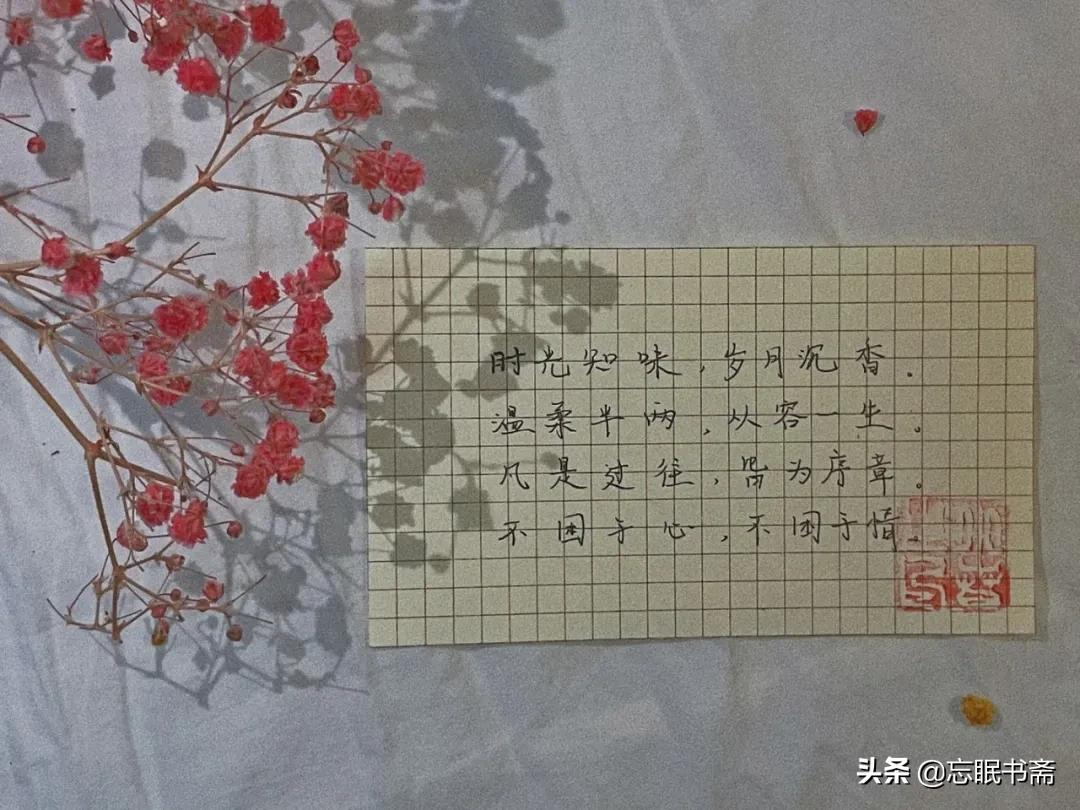 时光知味，岁月沉香.
温柔半两，从容一生。
凡是过往，皆为序章。
不困于心，不困于情.
头条 @忘眠书斋